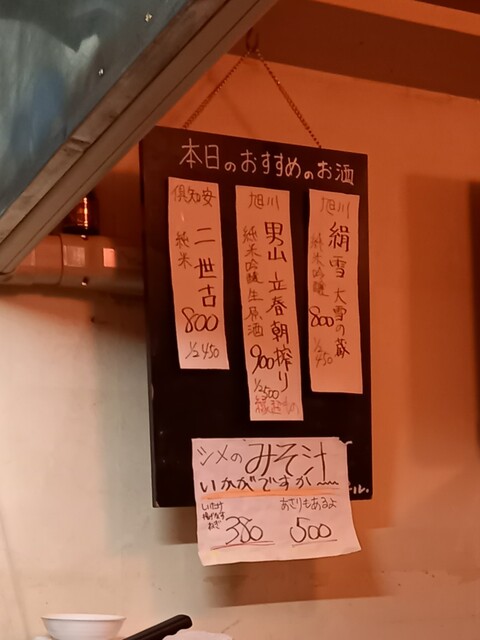 本日のおすすめのお酒
旭川
絹雪 大雪の蔵
純米吟醸
800
1/2 450
旭川
男山 立春朝搾り
純米吟醸生原酒
900
1/2 500
倶知安
二世古
純米
800
1/2 450
シメの みそ汁
いかがですか〜
しいたけ
ねぎ
350
あさりもあるよ
500
ル.